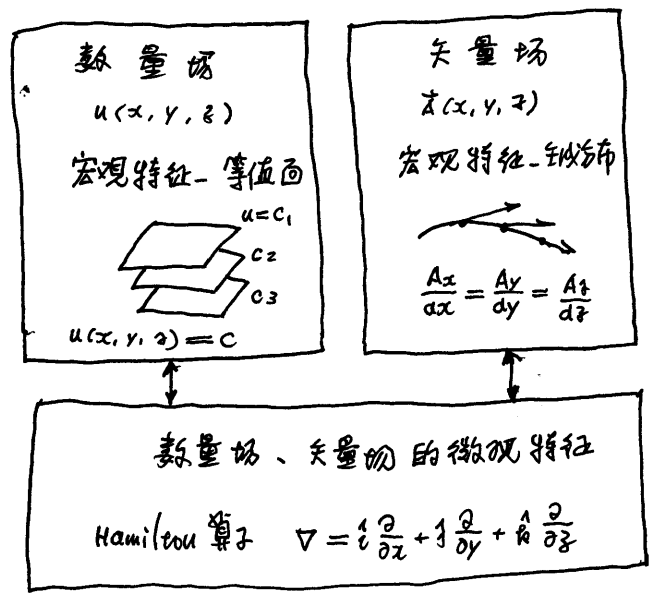 数量场
u(x, y, z)
宏观特征—等值面
u=C₁
C2
C3
u(x, y, z) = C
矢量场
A⃗(x, y, z)
宏观特征—矢线分布
Ax/dx = Ay/dy = Az/dz
数量场、矢量场的微观特征
Hamilton 算子 ∇ = î ∂/∂x + ĵ ∂/∂y + k̂ ∂/∂z